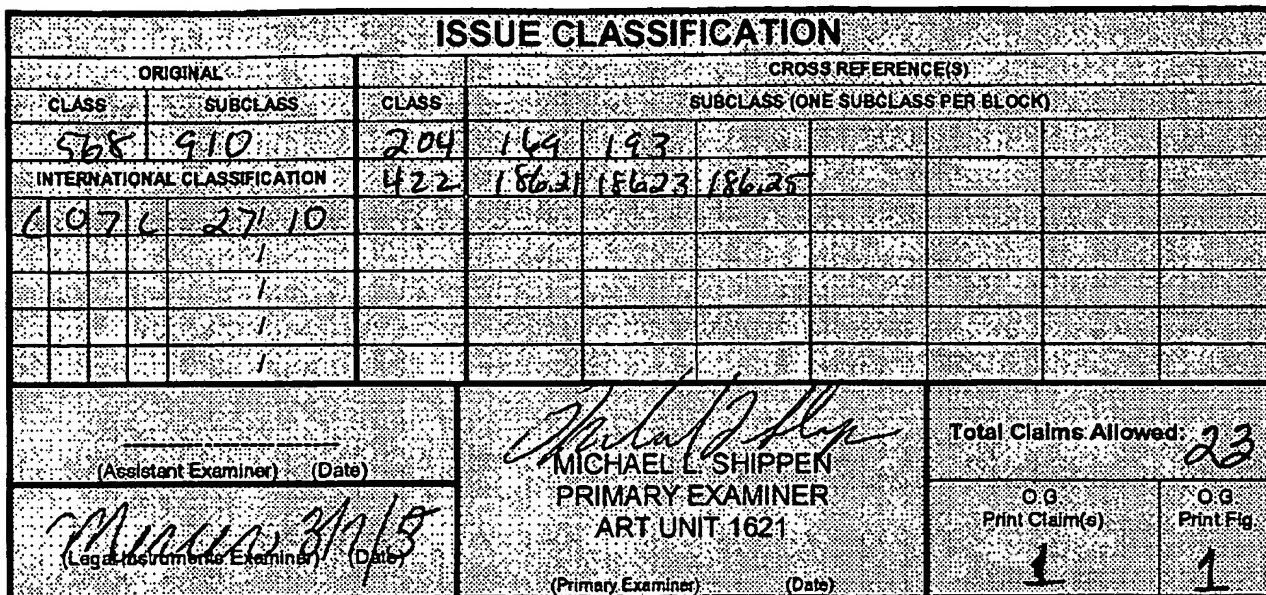 ISSUE CLASSIFICATION
ORIGINAL CROSS REFERENCE(S)
CLASS SUBCLASS CLASS SUBCLASS (ONE SUBCLASS PER BLOCK)
568 910 204 169 193
INTERNATIONAL CLASSIFICATION 422 186.21 186.23 186.25
C 0 7 C 27/10
/
/
/
/
(Assistant Examiner) (Date)
MICHAEL L. SHIPPEN
PRIMARY EXAMINER
ART UNIT 1621
(Primary Examiner) (Date)
Total Claims Allowed: 23
(Legal Instruments Examiner) (Date)
O.G. Print Claim(s)
1
O.G. Print Fig.
1